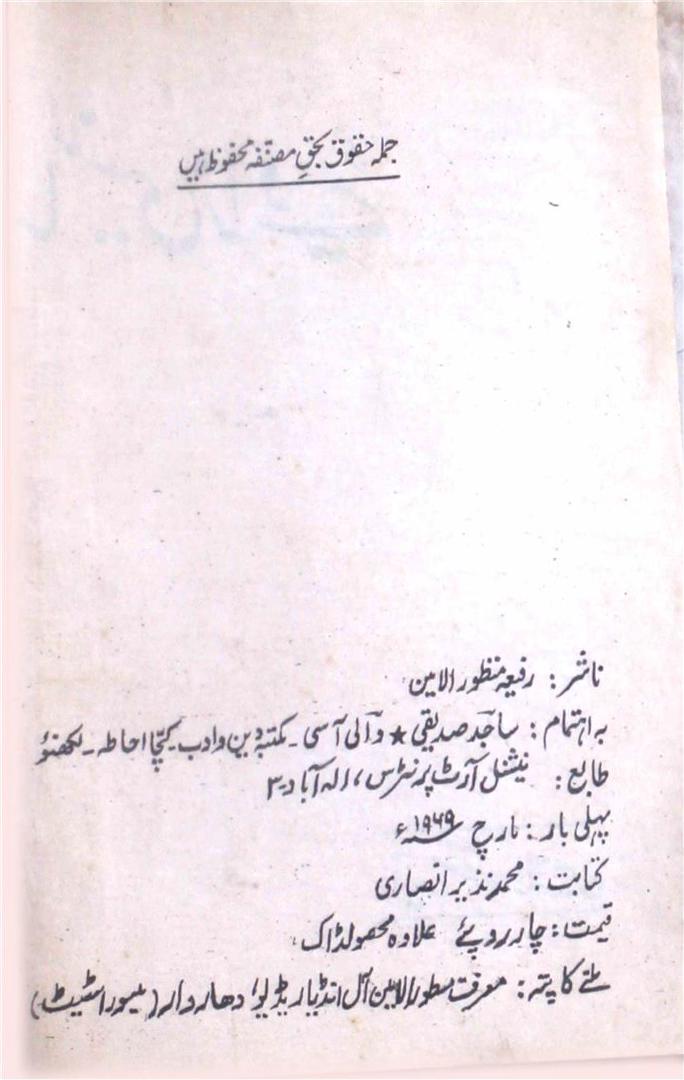 جملہ حقوق بحقِ مصنفہ محفوظ ہیں
ناشر: رفیعہ منظور الامین
بہ اہتمام: ساجد صدیقی ★ والی آسی۔ مکتبہ دین و ادب۔ کچّا احاطہ۔ لکھنؤ
طابع: نیشنل آرٹ پرنٹرس، الہ آباد۔۳
پہلی بار: مارچ ۱۹۶۹ء
کتابت: محمد نذیر انصاری
قیمت: چار روپئے علاوہ محصولڈاک
ملنے کا پتہ: معرفت منظور الامین آل انڈیا ریڈیو، دھاروار (میسور اسٹیٹ)